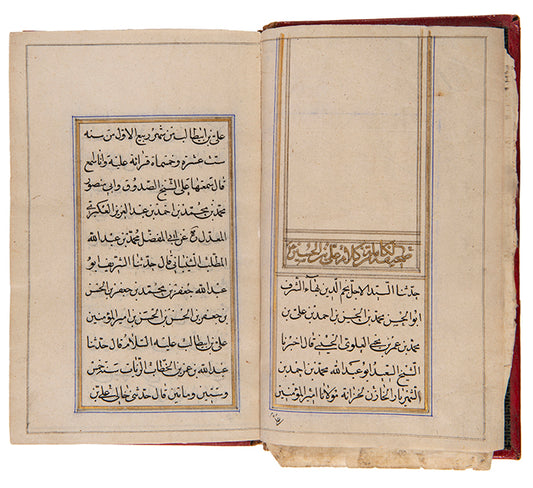 حدثنا السيد الاجل نجم الدين بهاء الشرف
ابو الحسن محمد بن الحسن بن احمد بن علي بن
محمد بن عمر بن يحيى العلوي الحسيني قال اخبرنا
الشيخ السعيد ابو عبد الله محمد بن احمد بن
شهريار الخازن لخزانة مولانا امير المؤمنين
علي بن ابيطالب في شهر ربيع الاول من سنة
ست عشرة وخمسمائة قراءة عليه وانا اسمع
قال سمعتها على الشيخ الصدوق ابي منصور
محمد بن محمد بن احمد بن عبد العزيز العكبري
المعدل ره عن ابي المفضل محمد بن عبد الله
المطلب الشيباني قال حدثنا الشريف ابو
عبد الله جعفر بن محمد بن جعفر بن الحسن
بن جعفر بن الحسن بن الحسن بن امير المؤمنين
علي بن ابيطالب عليه السلام قال حدثنا
عبد الله بن عمر بن الخطاب الزيات سنة خمس
وستين ومأتين قال حدثني خالي علي بن